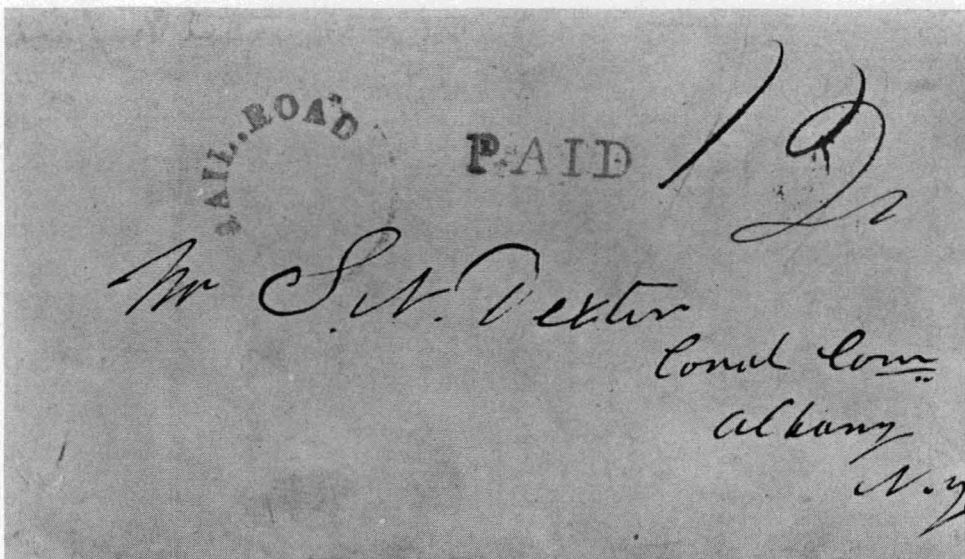 RAIL.ROAD
PAID
12
Mr S. N. Dexter
Canal Com
Albany
N.Y